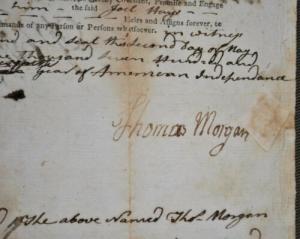 Covenant, Promise and Engage
the said Joel
Heirs and Assigns forever, to
mands of any Person or Persons whatsoever. In witness
and seal this second Day of May
thousand seven Hundred and
year of American Independance
Thomas Morgan
of the above Named Thos. Morgan